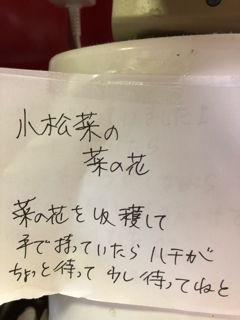 小松菜の
菜の花
菜の花を収穫して
手で持っていたら ハチが
ちょっと待って 少し待ってねと